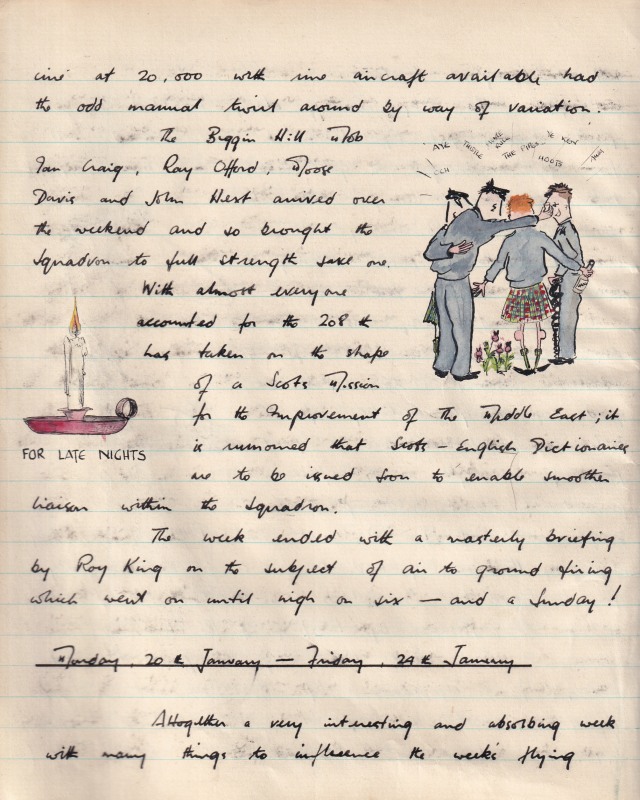 cine at 20,000 with nine aircraft available had
the odd manual twirl around by way of variation.
The Biggin Hill Mob
Ian Craig, Ray Offord, Moose
Davis and John West arrived over
the weekend and so brought the
squadron to full strength save one.
AYE
OCH
THOSE
THE PIPES
YE KEN
HOOTS
With almost everyone
accounted for the 208 th
has taken on the shape
of a Scots Mission
for the Improvement of the Middle East; it
is rumoured that Scots - English Dictionaries
are to be issued soon to enable smoother
liaison within the squadron.
FOR LATE NIGHTS
The week ended with a masterly briefing
by Roy King on the subject of air to ground firing
which went on until nigh on six — and a Sunday!
Monday, 20 th January — Friday, 24 th January
Altogether a very interesting and absorbing week
with many things to influence the week's flying